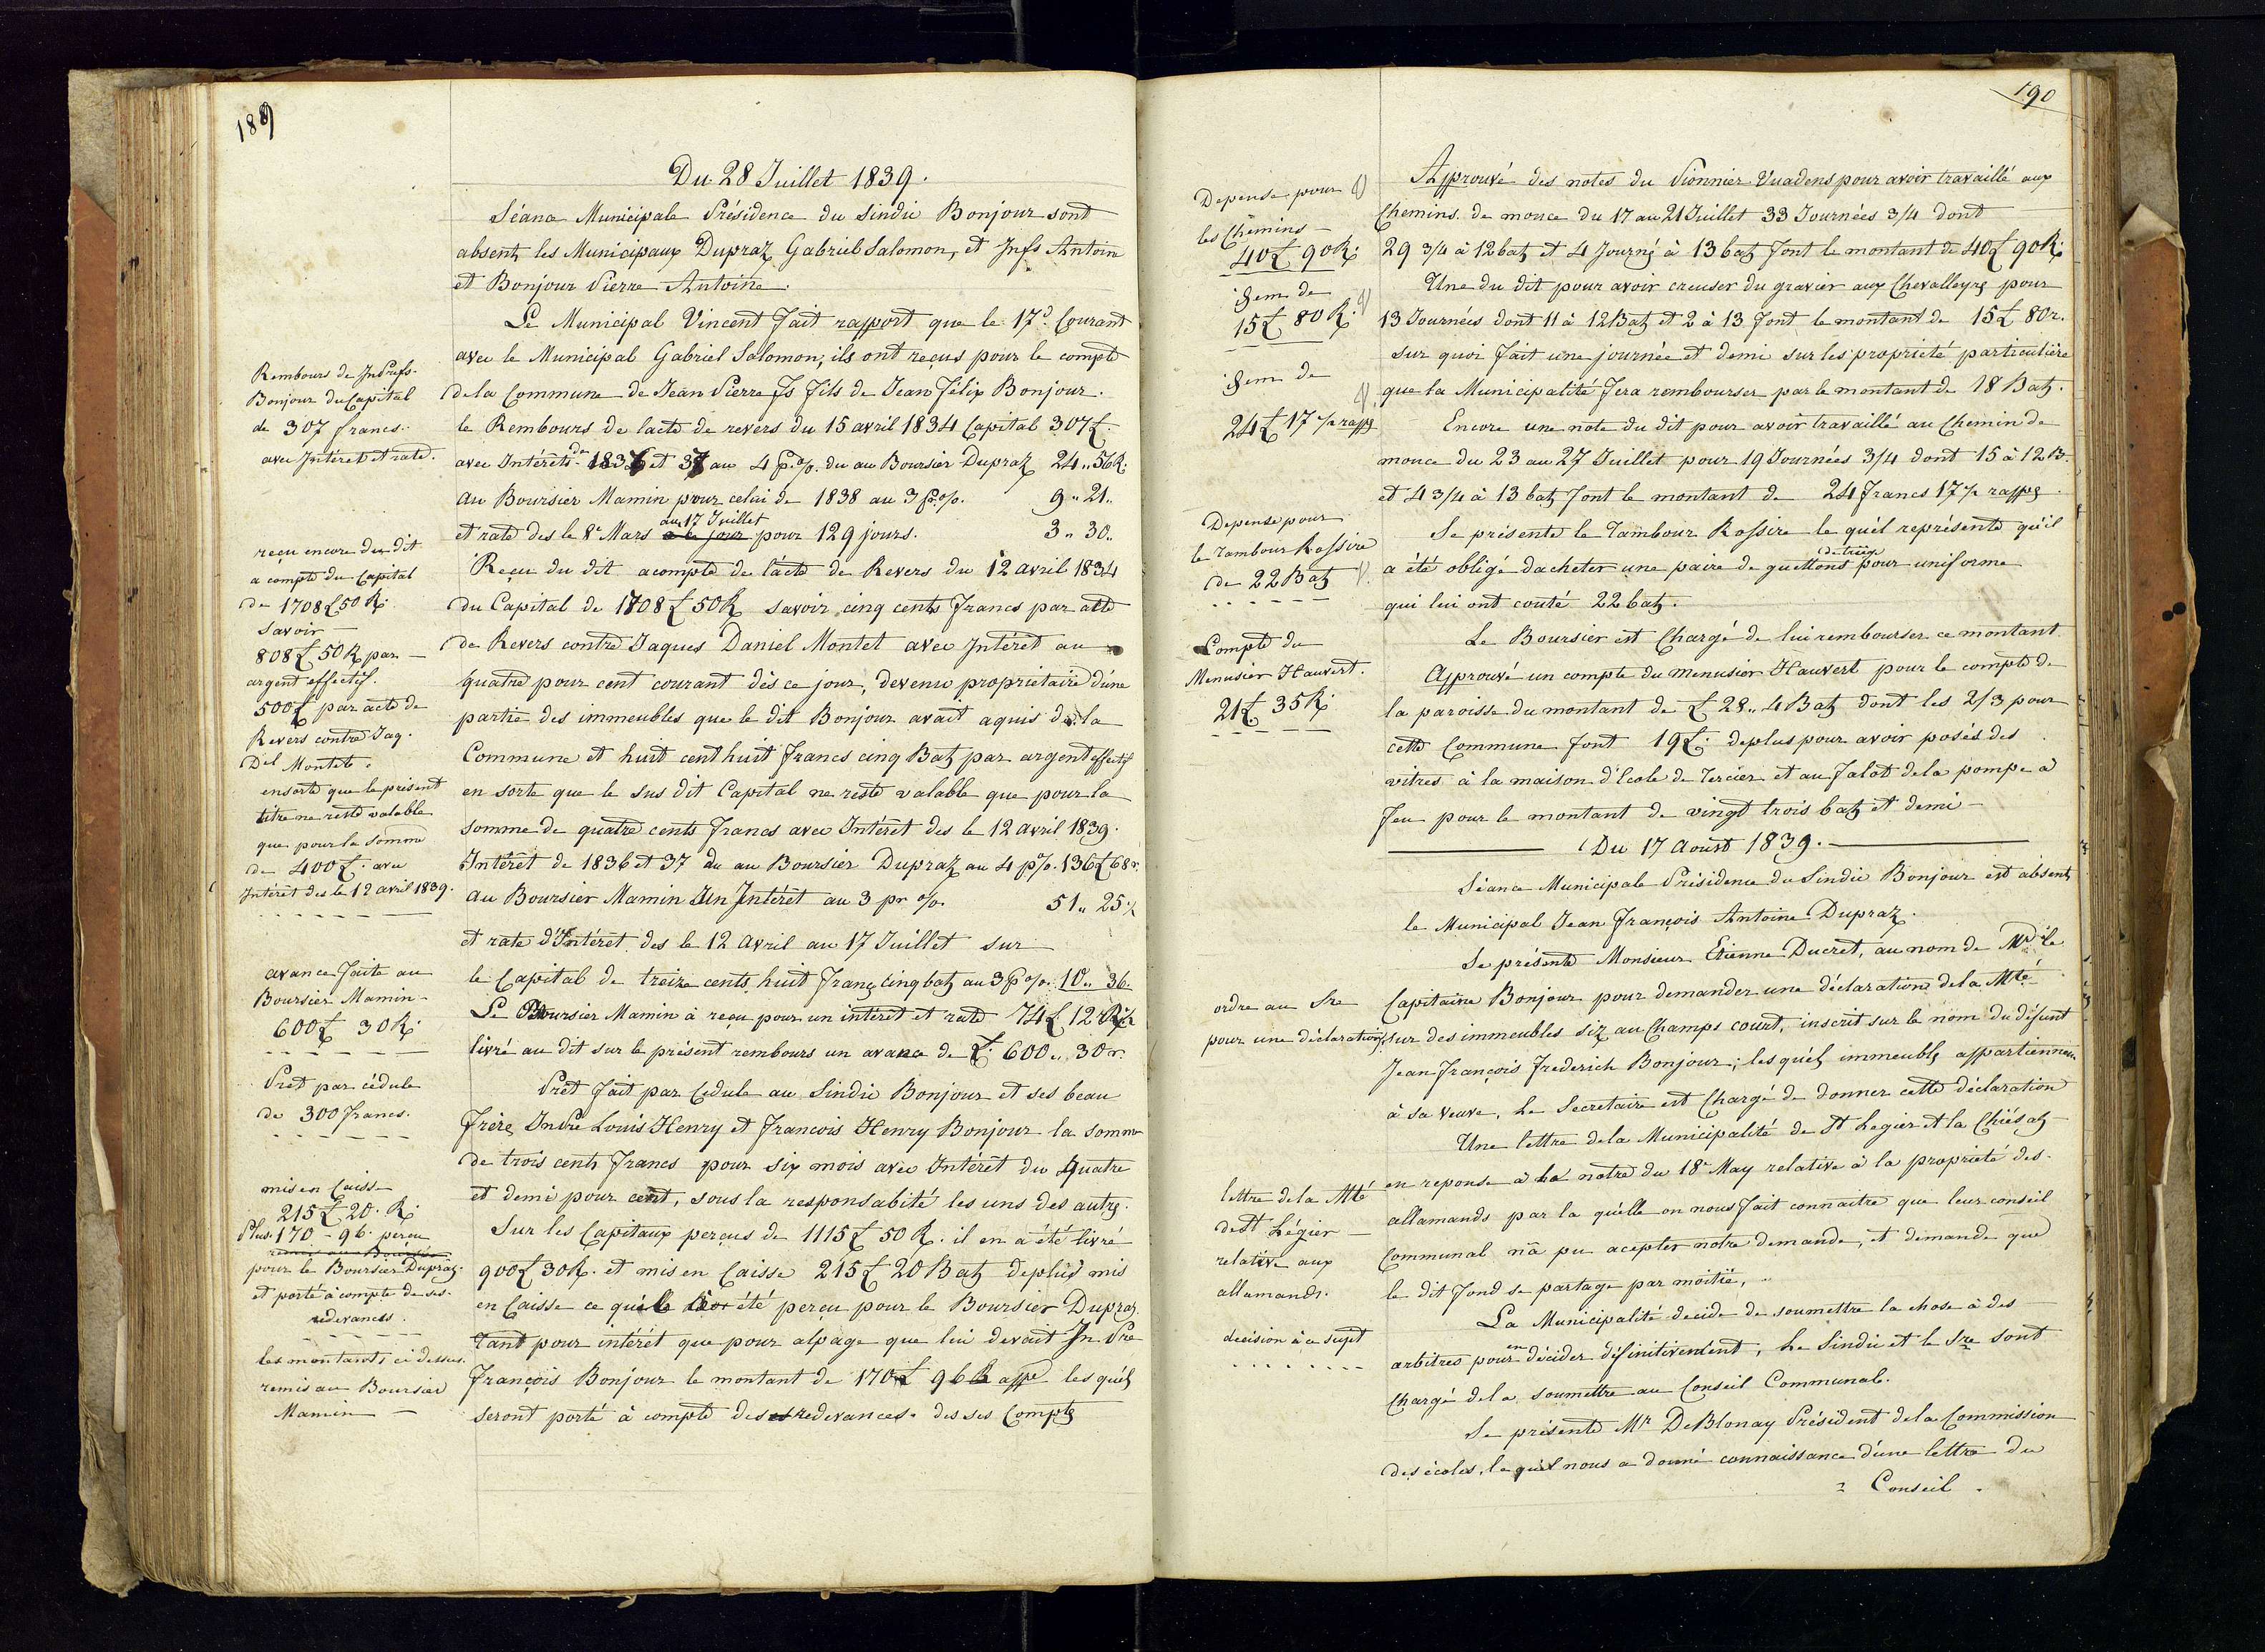 189
Du 28 Juillet 1839.
Séance Municipale Présidence du Sindic Bonjour sont
absent les Municipaux Dupraz Gabriel Salomon, et Antoine
et Bonjour Pierre Antoine.
Le Municipal Vincent fait rapport que le 17e Courant
avec le Municipal Gabriel Salomon, ils ont reçus pour le compte
de la Commune de Jean Pierre fs fils de Jean félix Bonjour.
le Rembours de lacte de revers du 15 avril 1834 Capital 307£.
avec Intérêts de 1836 et 37 au 4 p.% du au Boursier Dupraz 24 „ 56 R.
au Boursier Mamin pour celui de 1838 au 3 p.% 9 „ 21 „
et rate des le 8e Mars au 17 Juillet pour 129 jours. 3 „ 30 „
Reçu du dit acompte de l'acte de Revers du 12 avril 1834
du Capital de 1708£ 50R savoir cinq cents francs par acte
de Revers contre Jaques Daniel Montet avec Intérêt au
quatre pour cent courant dès ce jour, devenu propriétaire d'une
partie des immeubles que le dit Bonjour avait aquis de la
Commune et huit cent huit francs cinq Batz par argent effectif
en sorte que le sus dit Capital ne reste valable que pour la
somme de quatre cents francs avec Intérêt des le 12 avril 1839.
Intérêt de 1836 et 37 du au Boursier Dupraz au 4 p% 136£ 68r.
au Boursier Mamin Un Intérêt au 3 pr % 51 „ 25 ½
et rate d'Intérêt des le 12 avril au 17 Juillet sur
le Capital de treize cents huit franç cinq batz au 3 p % 10 „ 36.
Le Boursier Mamin à reçu pour un intérêt et rate 74£ 12 R ½
livré au dit sur le présent rembours un avance de £. 600 „ 30 r.
Prêt fait par Cedule au Sindic Bonjour et ses beau
frère Louis Henry et Francois Henry Bonjour la somme
de trois cents francs pour six mois avec Intérêt du quatre
et demi pour cent, sous la responsabité les uns des autres.
Sur les Capitaux perçus de 1115£ 50 R. il en a été livré
900£ 30R. et mis en Caisse 215£ 20 Batz deplus mis
en Caisse ce été perçu pour le Boursier Dupraz
tant pour intérêt que pour alpage que lui devait Jn. Pre
François Bonjour le montant de 170£ 96 Rappe les quéls
seront porté à compte des redevances des ses Compte
Rembours de
Bonjour du Capital
de 307 francs.
avec Intéret et rate.
reçu encore du dit
a compte du Capital
de 1708£ 50 R.
savoir
808£ 50 R par
argent effectif.
500£ par acte de
Revers contre Jaq.
Del Montet.
ensorte que le présent
titre ne reste valable
que pour la somme
de 400£. avec
Intérêt des le 12 avril 1839.
avance faite au
Boursier Mamin
600£ 30 R.
Prêt par cédule
de 300 francs.
mis en Caisse
215£ 20. R.
Plus. 170 - 96. perçu
remis au Boursier
pour le Boursier Dupraz.
et porté à compte de ses
redevances.
les montants ci dessus
remis au Boursier
Mamin
190
Approuvé des notes du Pionnier Vuadens pour avoir travaillé aux
Chemins de mouce du 17 au 21 Juillet 33 Journées 3/4 dont
29 3/4 à 12 batz et 4 Journé à 13 batz font le montant de 40£ 90R.
Une du dit pour avoir creuser du gravier aux Chevalleyre pour
13 Journées dont 11 à 12 Batz et 2 à 13 font le montant de 15£ 80 r.
sur quoi fait une journée et demi sur les proprieté particulière
que la Municipalité fera rembourser par le montant de 18 Batz.
Encore une note du dit pour avoir travaillé au Chemin de
mouce du 23 au 27 Juillet pour 19 Journées 3/4 dont 15 à 12 B.
et 4 3/4 à 13 batz font le montant de 24 francs 17 ½ rappes
Se présente le Tambour Rossire le quél représente qu'il
a été obligé dacheter une paire de guettons de triège pour uniforme
qui lui ont couté 22 batz.
Le Boursier est Chargé de lui rembourser ce montant.
Approuvé un compte du menusier Hauvert pour le compte de
la paroisse du montant de £ 28 „ 4 Batz dont les 2/3 pour
cette Commune font 19£. deplus pour avoir posés des
vitres à la maison d'école de Tercier et au falot de la pompe à
feu pour le montant de vingt trois batz et demi
Du 17 Aoust 1839.
Séance Municipale Présidence du Sindic Bonjour est absent
le Municipal Jean François Antoine Dupraz.
Se présente Monsieur Etienne Ducret, au nom de Mde le
Capitaine Bonjour pour demander une déclaration de la Mté
sur des immeubles siz au Champs court, inscrit sur le nom du défunt
Jean François Frederich Bonjour; lesquéls immeubles appartiennent
à sa veuve, le Secretaire est Chargé de donner cette déclaration
Une lettre de la Municipalité de St Legier et la Chiésaz
en reponse à la notre du 18e May relative à la proprieté des
allamands par la quélle on nous fait connaitre que leur conseil
Communal n'a pu acepter notre demande, et demande que
le dit fond se partage par moitié,
La Municipalité decide de soumettre la chose à des
arbitres pour en décider définitivement, le Sindic et le Sre sont
Chargé de la soumettre au Conseil Communal.
Se présente Mr DeBlonay Président de la Commission
des écoles, le quél nous a donné connaissance d'une lettre du
Conseil
Depense pour
les Chemins
40£ 90R.
idem de
15£ 80 R.
idem de
24£ 17 ½ rapp
Depense pour
le Tambour Rossire
de 22 Batz
Compte du
Menusier Hauvert.
21£ 35R.
ordre au Sre
pour une déclaration
lettre de la Mté
de St Légier
relative aux
allamands.
decision à ce sujet